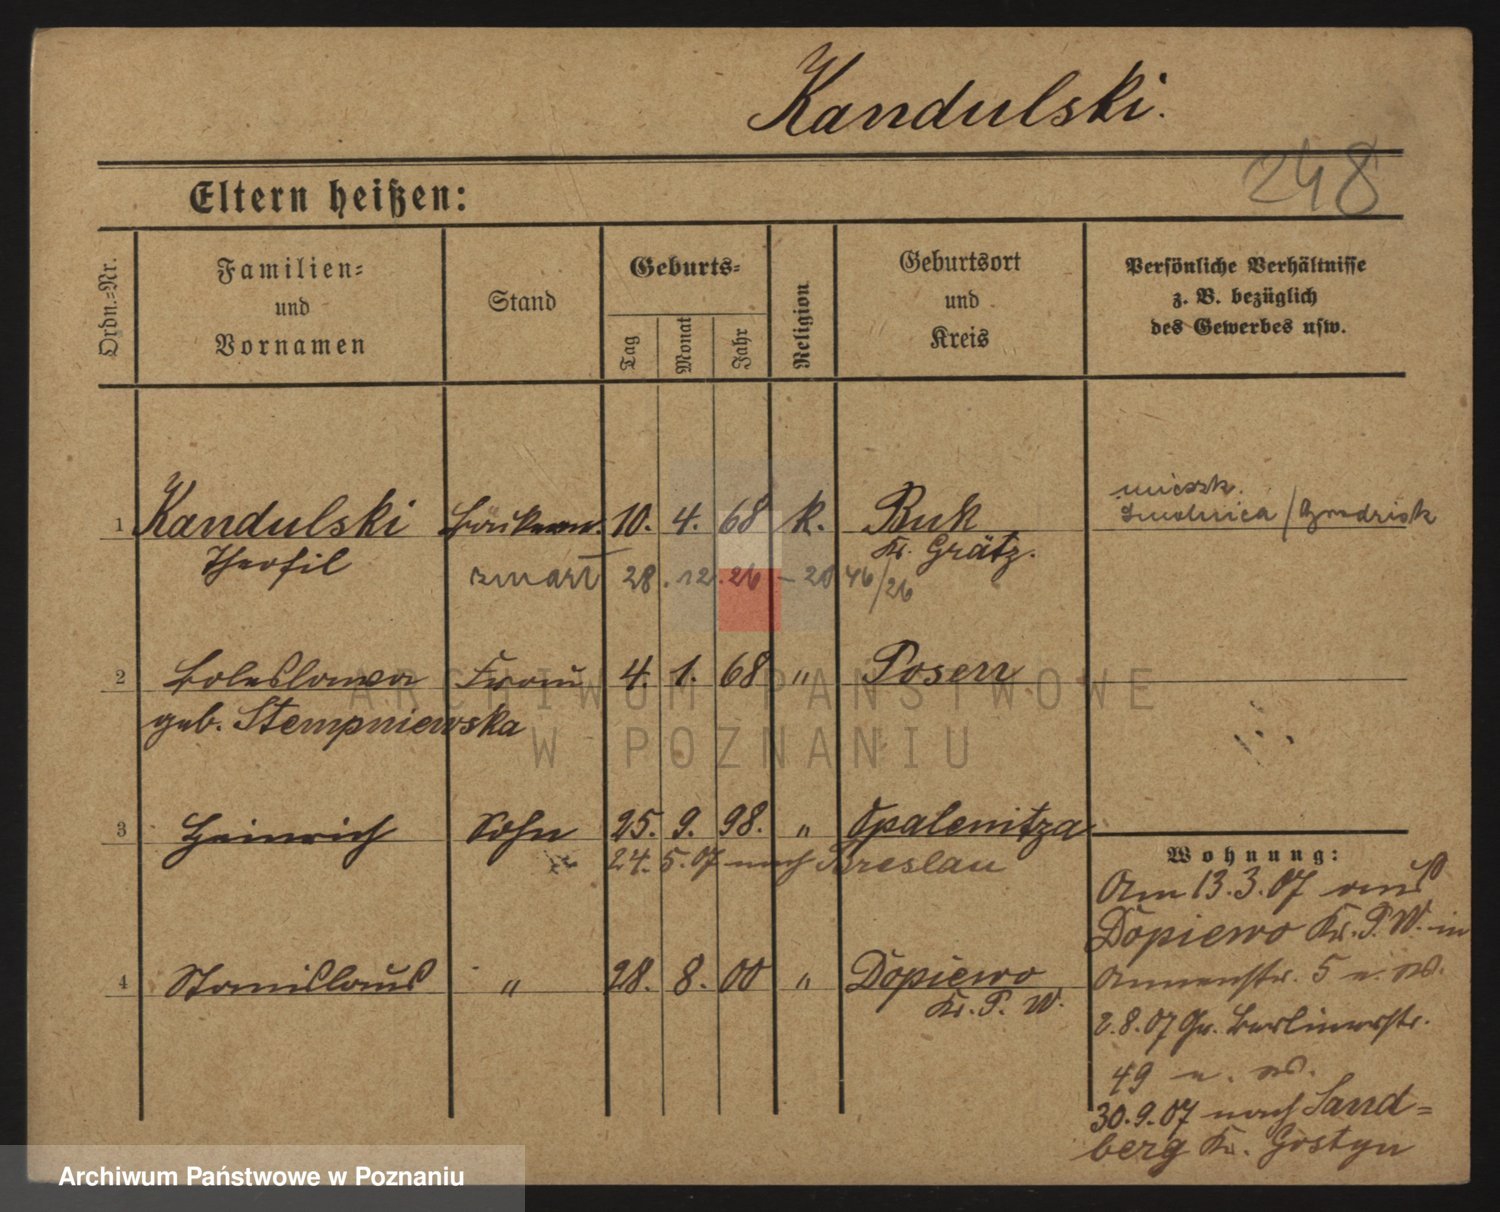 Kandulski.
248
Eltern heißen:
Ordn.-Nr.
Familien- und Vornamen
Stand
Geburts-
Tag
Monat
Jahr
Religion
Geburtsort und Kreis
Persönliche Verhältnisse z. B. bezüglich des Gewerbes usw.
1 Kandulski 10. 4. 68 k. Buk
Theofil Kr. Grätz.
zmarł 28. 12. 26 – 2046/26
mieszk.
/Grodzisk
2 Boleslawa Frau 4. 1. 68 " Posen
geb. Stempniewska
3 Heinrich Sohn 25. 9. 98. " Opalenitza
24. 5. 07 nach Breslau
4 Stanislaus " 28. 8. 00 " Dopiewo
Kr. P. W.
Wohnung:
Am 13.3.07 aus
Dopiewo Kr. P. W. in
Annenstr. 5 u. W.
2.8.07 Gr. Berlinerstr.
49 u. W.
30.9.07 nach Sand-
berg Kr. Gostyn
ARCHIWUM PAŃSTWOWE
W POZNANIU
Archiwum Państwowe w Poznaniu